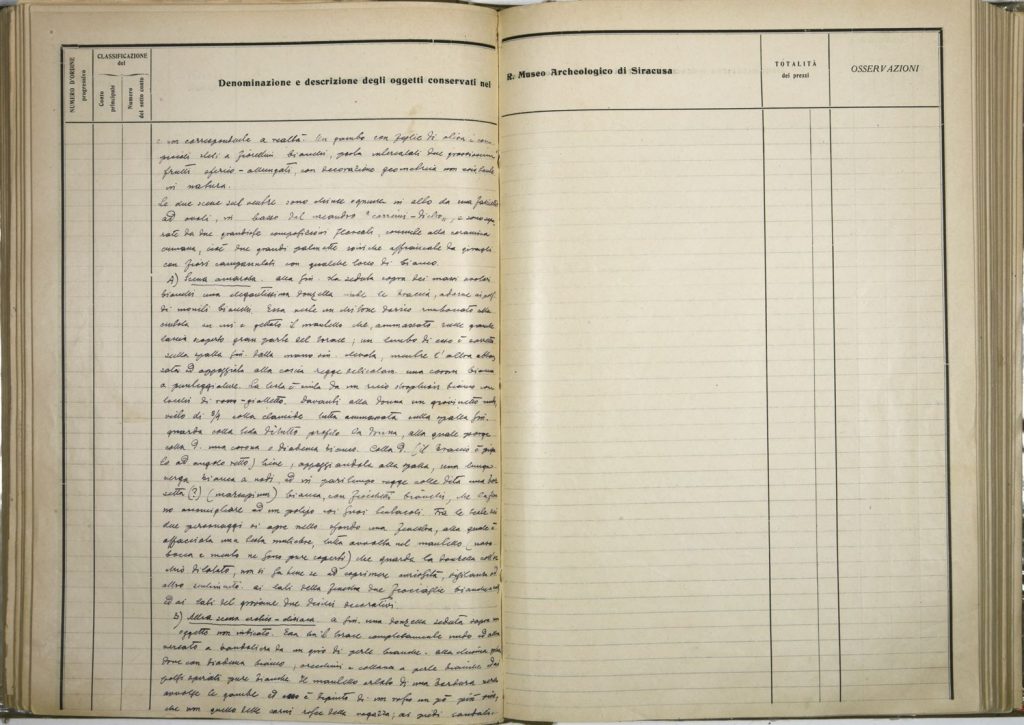 NUMERO D'ORDINE
progressivo
CLASSIFICAZIONE
del
Conto
principale
Numero
del sotto conto
Denominazione e descrizione degli oggetti conservati nel
R. Museo Archeologico di Siracusa
TOTALITÀ
dei prezzi
OSSERVAZIONI
corrispondente a realtà. Un gambo con foglie di olivo e con
piccoli steli a fiorellini bianchi, porta intercalati due grossissimi
frutti sferico-allungati, con decorazione geometrica non esistente
in natura.
Le due scene sul ventre sono chiuse ognuna in alto da una fascetta
ad ovoli, in basso dal meandro "correns-dicho", e sono sepa
rate da due grandiose composizioni floreali, comuni alla ceramica
cumana, cioè due grandi palmette affiancate da girali
con fiori campanulati con qualche tocco di bianco.
A) Scena amorosa. Alla sin. sta seduta sopra dei massi
bianchi una elegantissima donzella nude le braccia, adorne ai polsi
di monili bianchi. Essa veste un chitone dorico rimboccato alla
cintola su cui è gettato il mantello che, ammassato sulle gambe
lascia scoperto gran parte del torace; un lembo di esso è
sulla spalla sin. dalla mano sin. elevata, mentre l'altra abbas
sata ed appoggiata alla coscia regge delicatam. una corona bianca
a punteggiature. La testa è cinta da un ricco bianco con
tocchi di rosso-gialletto. Davanti alla donna un giovinetto nudo
visto di 3/4 colla clamide tutta ammassata sulla spalla sin.
guarda colla testa di tutto profilo la donna, alla quale porge
colla D. una corona o diadema bianco. Colla D. (il braccio è piega
to ad angolo retto) tiene, appoggiandola alla spalla, una lunga
verga bianca a nodi, ed in pari tempo regge colle dita una bor
setta (?) (marsupium) bianca, con fiocchetti bianchi, che la fan
no assomigliare ad un polipo coi suoi tentacoli. Fra le teste dei
due personaggi si apre nello sfondo una finestra, alla quale è
affacciata una testa muliebre, tutta avvolta nel mantello (naso
bocca e mento ne sono pure coperti) che guarda la donzella coll'oc
chio dilatato, non si sa bene se ad esprimere curiosità, vigilanza od
altro sentimento. Ai lati della finestra due
ed ai lati del giovane due dischi decorativi.
B) Altra scena erotico-dionisiaca. A sin. una donzella seduta sopra un
oggetto non indicato. Essa ha il torace completamente nudo ed attra
versato a bandoliera da un giro di perle bianche. Alla
done con diadema bianco, orecchini e collana a perle bianche. Dai
polsi armati pure bianche. Il mantello orlato di una bordura nera
avvolge le gambe ed esso è dipinto di un rosso un pò più vivo,
che non quello delle carni rosee della ragazza; ai piedi sandali